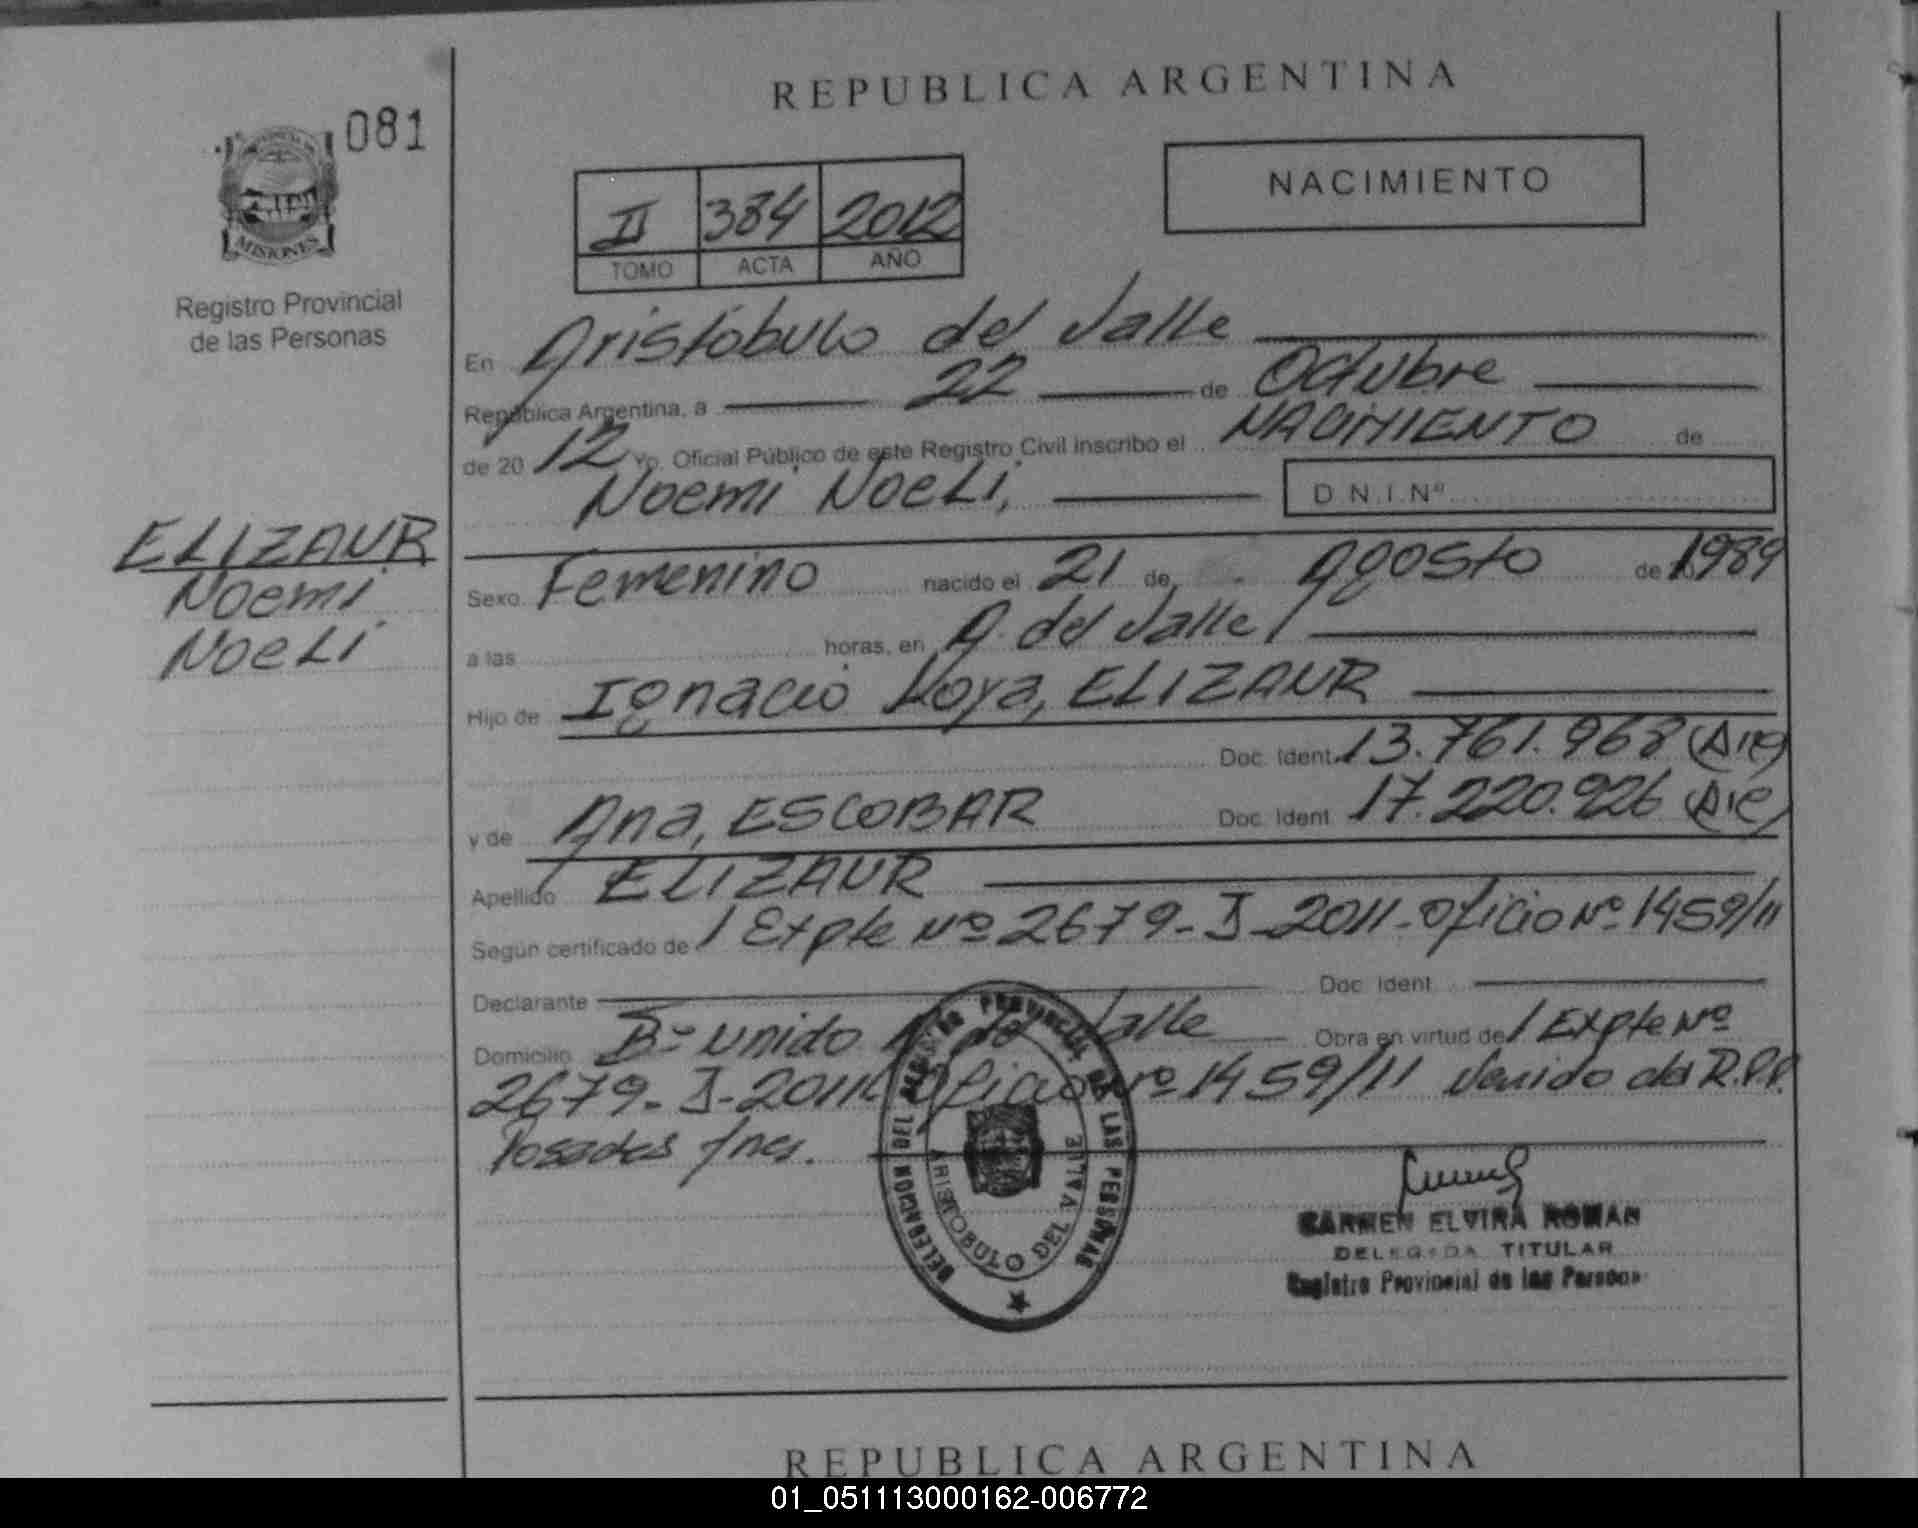 REPUBLICA ARGENTINA
081
MISIONES
Registro Provincial
de las Personas
NACIMIENTO
II 384 2012
TOMO ACTA AÑO
En Aristóbulo del Valle
República Argentina, a 22 de Octubre
de 20 12 Yo, Oficial Público de este Registro Civil inscribo el NACIMIENTO de
Noemi Noeli,
D.N.I.Nº
ELIZAUR
Noemi
Noeli
Sexo Femenino nacido el 21 de Agosto de 1989
a las horas, en A. del Valle
Hijo de Ignacio Loya, ELIZAUR
Doc. Ident. 13.761.968
y de Ana, ESCOBAR Doc. Ident. 17.220.926
Apellido ELIZAUR
Según certificado de Expte Nº 2679-I-2011-Oficio Nº 1459/11
Declarante Doc. Ident.
Domicilio Bº Unido A. del Valle Obra en virtud de Expte Nº
2679-I-2011 Oficio Nº 1459/11 Venido del R.P.P.
Posadas Mnes.
DELEGACION DEL REGISTRO PROVINCIAL DE LAS PERSONAS
ARISTOBULO DEL VALLE
CARMEN ELVIRA ROMAN
DELEGADA TITULAR
Registro Provincial de las Personas
REPUBLICA ARGENTINA
01_051113000162-006772